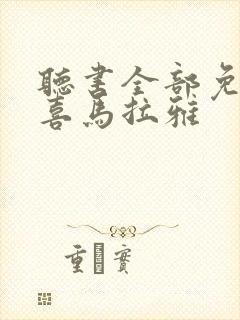 聽書全部免
喜馬拉雅
重 實